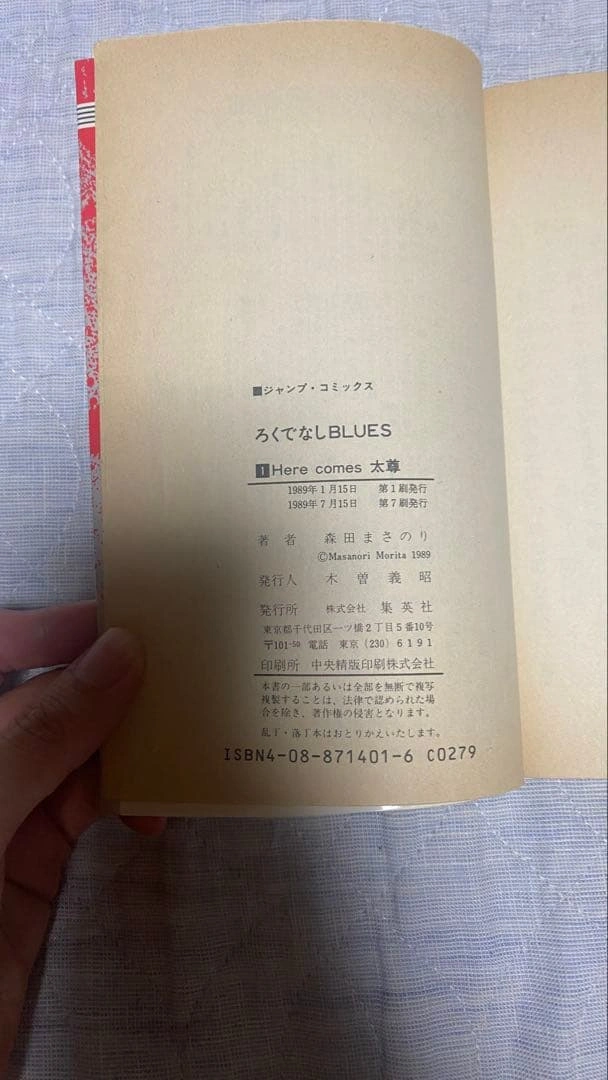 ■ジャンプ・コミックス
ろくでなしBLUES
1 Here comes 太尊
1989年1月15日 第1刷発行
1989年7月15日 第7刷発行
著者 森田まさのり
©Masanori Morita 1989
発行人 木曽義昭
発行所 株式会社 集英社
東京都千代田区一ツ橋2丁目5番10号
〒101-50 電話 東京(230)6191
印刷所 中央精版印刷株式会社
本書の一部あるいは全部を無断で複写
複製することは、法律で認められた場
合を除き、著作権の侵害となります。
乱丁・落丁本はおとりかえいたします。
ISBN4-08-871401-6 C0279